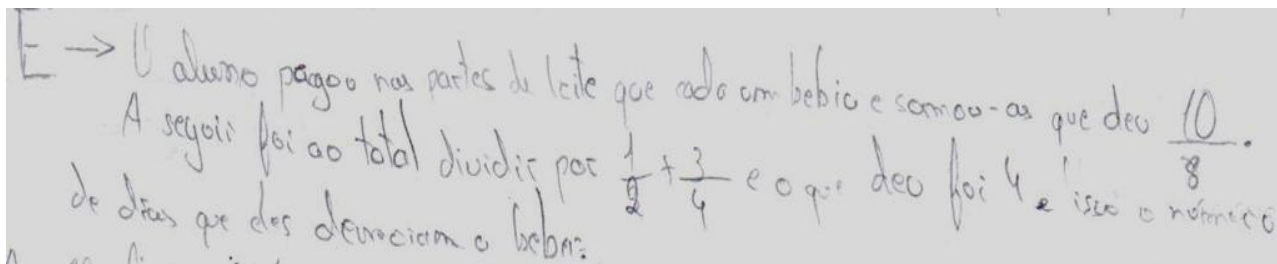 E → O aluno pagou nas partes de leite que cada um bebia e somou-as que deu 10/8.
A seguir foi ao total dividir por 1/2 + 3/4 e o que deu foi 4 e isso o número
de dias que eles demoraram a beber.